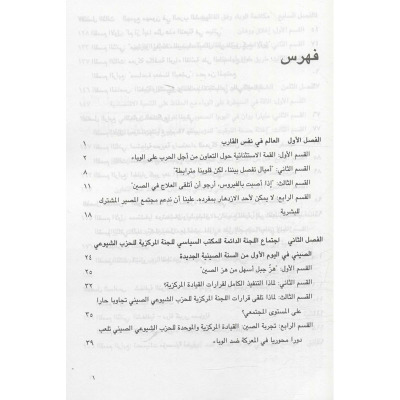 فهرس
الفصل الأول العالم في نفس القارب ١
القسم الأول: القمة الاستثنائية حول التعاون من أجل الحرب على الوباء ٢
القسم الثاني: "أميال تفصل بيننا، لكن قلوبنا مترابطة" ٨
القسم الثالث: "إذا أصبت بالفيروس، أرجو أن أتلقى العلاج في الصين" ١١
القسم الرابع: لا يمكن لأحد الازدهار بمفرده، علينا أن ندعم مجتمع المصير المشترك
للبشرية ١٨
الفصل الثاني اجتماع اللجنة الدائمة للمكتب السياسي للجنة المركزية للحزب الشيوعي
الصيني في اليوم الأول من السنة الصينية الجديدة ٢٤
القسم الأول: "هزّ جبل أسهل من هز الصين" ٢٥
القسم الثاني: لماذا التنفيذ الكامل لقرارات القيادة المركزية؟ ٣٢
القسم الثالث: لماذا تلقى قرارات اللجنة المركزية للحزب الشيوعي الصيني تجاوبا حارا
على المستوى المجتمعي؟ ٣٥
القسم الرابع: تجربة الصين: القيادة المركزية والموحدة للحزب الشيوعي الصيني تلعب
دورا محوريا في المعركة ضد الوباء ٣٩
١